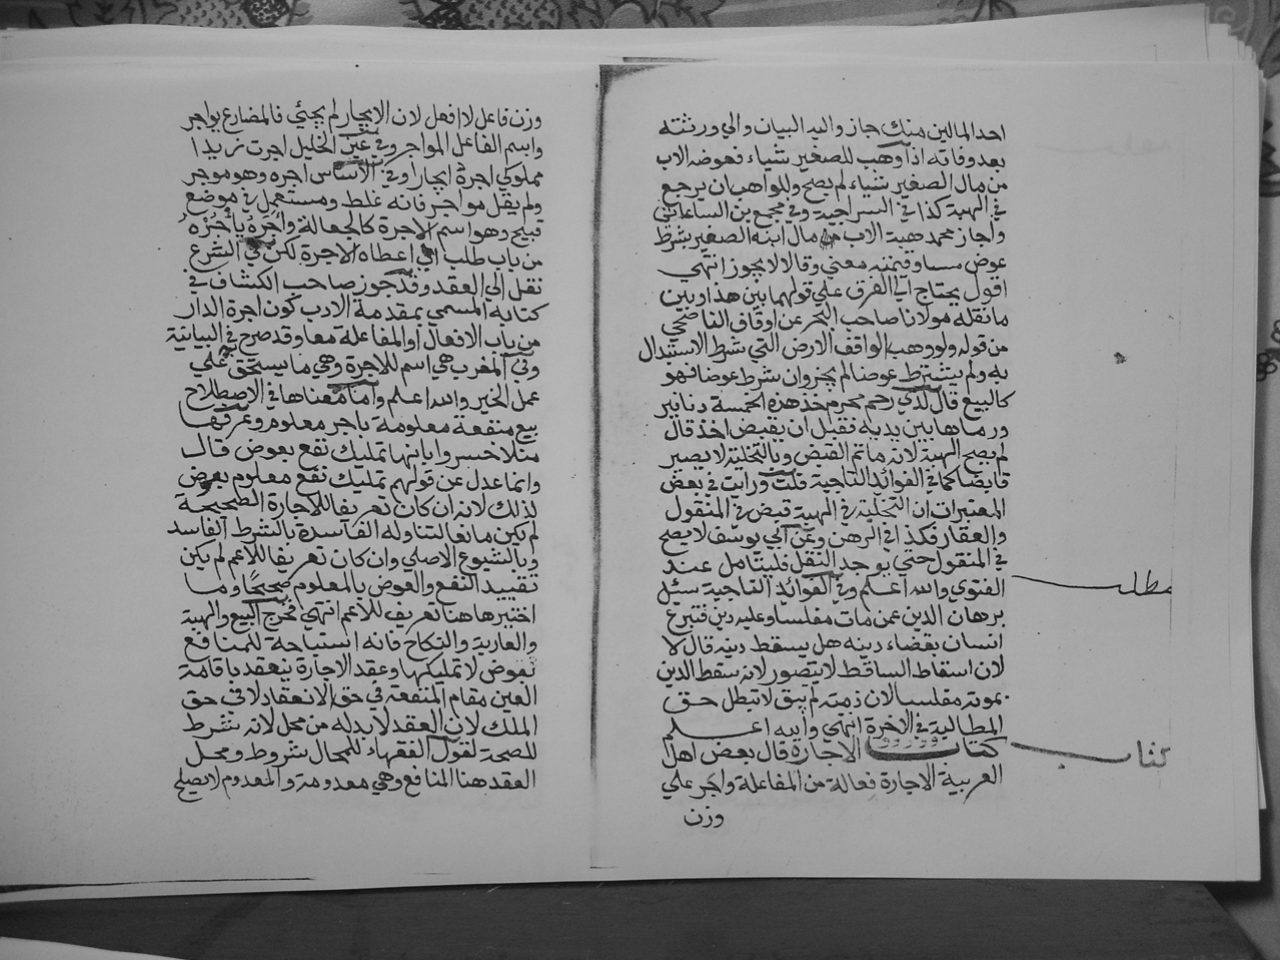 احد المالين منك جاز واليه البيان والي ورثته
بعد وفاته اذا وهب للصغير شياء فعوضه الاب
من مال الصغير شياء لم يصح وللواهب ان يرجع
في الهبة كذا في السراجية وفي مجمع بن الساعاتي
واجاز محمد هبة الاب من مال ابنه الصغير بشرط
عوض مساو قيمته معني وقالا لا يجوز انتهي
اقول يحتاج الي الفرق علي قولهما بين هذا وبين
ما نقله مولانا صاحب البحر عن اوقاف الناصحي
من قوله ولو وهب الواقف الارض التي شرط الاستبدال
به ولم يشترط عوضا لم يجز وان شرط عوضا فهو
كالبيع قال لذي رحم محرم خذ هذه الخمسة دنانير
ورماها بين يديه فقبل ان يقبض اخذ قال
لم يصح الهبة لانه ما تم القبض وبالتخلية لا يصير
قابضا كما في الفوائد التاجية قلت ورايت في بعض
المعتبرات ان التخلية في الهبة قبض في المنقول
والعقار فكذا في الرهن وعن ابي يوسف لا يصح
في المنقول حتي يوجد النقل فليتامل عند
الفتوي والله اعلم وفي الفوائد التاجية سئل
مطلب
برهان الدين عمن مات مفلسا وعليه دين فتبرع
انسان بقضاء دينه هل يسقط دينه قال لا
لان اسقاط الساقط لا يتصور لانه سقط الدين
بموته مفلسا لان ذمته لم تبق لا تبطل حق
المطالبة في الاخرة انتهي والله اعلم
كتاب الاجارة قال بعض اهل
كتاب
العربية الاجارة فعالة من المفاعلة واجر علي
وزن
وزن فاعل لا افعل لان الايجار لم يجئي فالمضارع يواجر
واسم الفاعل المواجر وفي عين الخليل اجرت زيدا
مملوكي اجرة ايجارا وفي الاساس اجره وهو موجر
ولم يقل مواجر فانه غلط ومستعمل في موضع
قبيح وهو اسم الاجرة كالجعالة واجره ياجره
من باب طلب اي اعطاه الاجرة لكن في الشرع
نقل الي العقد وقد جوز صاحب الكشاف في
كتابه المسمي بمقدمة الادب كون اجرة الدار
من باب الافعال او المفاعلة معا وقد صرح في البيانية
وفي المغرب هي اسم للاجرة وهي ما يستحق علي
عمل الخير والله اعلم واما معناها في الاصطلاح
بيع منفعة معلومة باجر معلوم وعرفها
منلا خسروا بانها تمليك نفع بعوض قال
وانما عدل عن قولهم تمليك نفع معلوم بعوض
كذلك لانه ان كان تعريفا للاجارة الصحيحة
لم يكن مانعا لتناوله الفاسدة بالشرط الفاسد
وبالشيوع الاصلي وان كان تعريفا للاعم لم يكن
تقييد النفع والعوض بالمعلوم صحيحا وما
اختير هاهنا تعريف للاعم انتهي فخرج البيع والهبة
والعارية والنكاح فانه استباحة للمنافع
بعوض لا تمليكها وعقد الاجارة ينعقد باقامة
العين مقام المنفعة في حق الانعقاد لا في حق
الملك لان العقد لا بد له من محل لانه شرط
للصحة لقول الفقهاء للمحال شروط ومحل
العقد هنا المنافع وهي معدومة والمعدوم لا يصلح